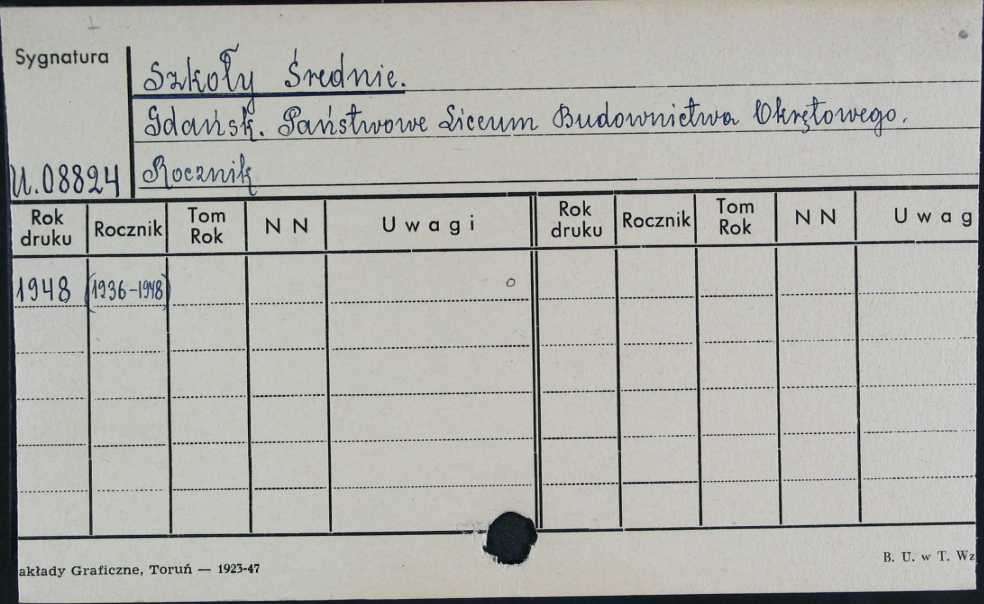 Sygnatura
Szkoły Średnie.
Gdańsk. Państwowe Liceum Budownictwa Okrętowego.
U.08824
Rocznik
Rok druku Rocznik Tom Rok N N Uwagi Rok druku Rocznik Tom Rok N N Uwag
1948 (1936-1948)
akłady Graficzne, Toruń — 1923-47
B. U. w T. Wz